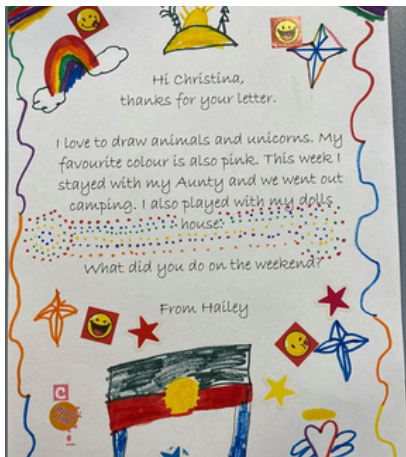 Hi Christina,
thanks for your letter.
I love to draw animals and unicorns. My
favourite colour is also pink. This week I
stayed with my Aunty and we went out
camping. I also played with my dolls
house.
What did you do on the weekend?
From Hailey